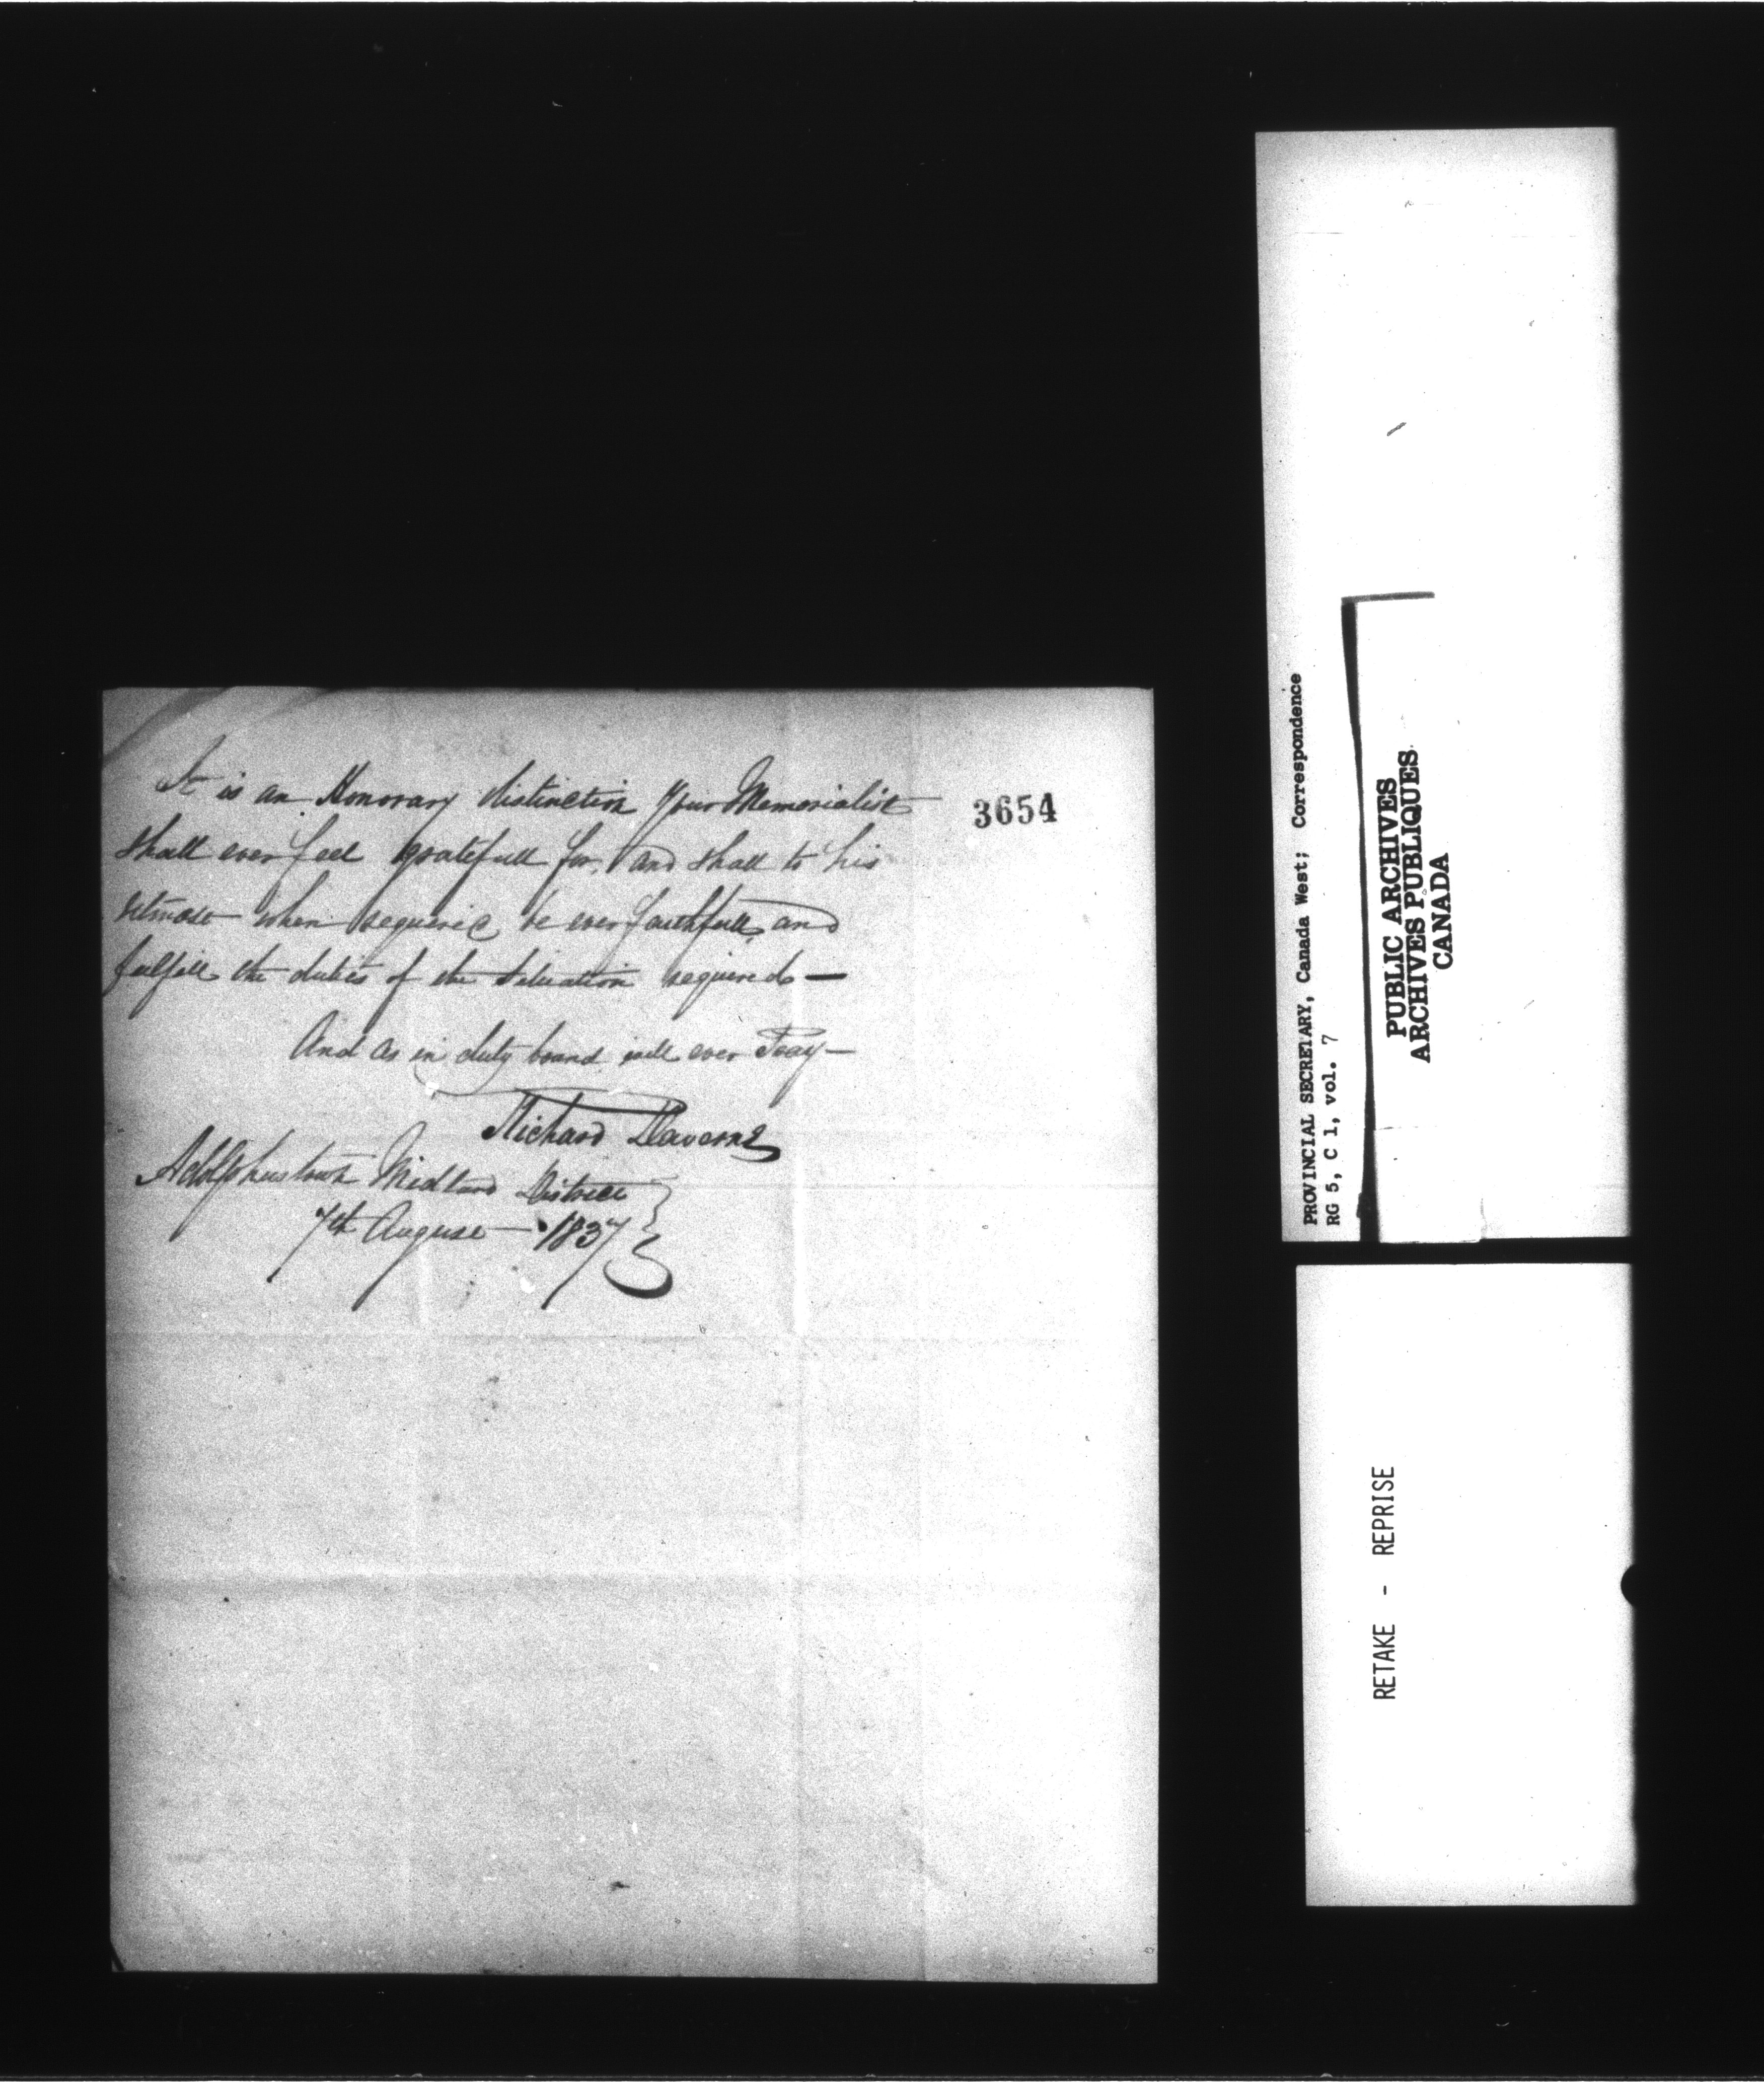 It is an Honorary distinction your Memorialist
3654
shall ever feel gratefull for, and shall to his
utmost when required be ever faithfull, and
fulfill the duties of the situation required —
And as in duty bound will ever Pray —
Richard Davern
Adolphustown Midland District
7th August — 1837
PROVINCIAL SECRETARY, Canada West; Correspondence
RG 5, C 1, vol. 7
PUBLIC ARCHIVES
ARCHIVES PUBLIQUES
CANADA
RETAKE - REPRISE